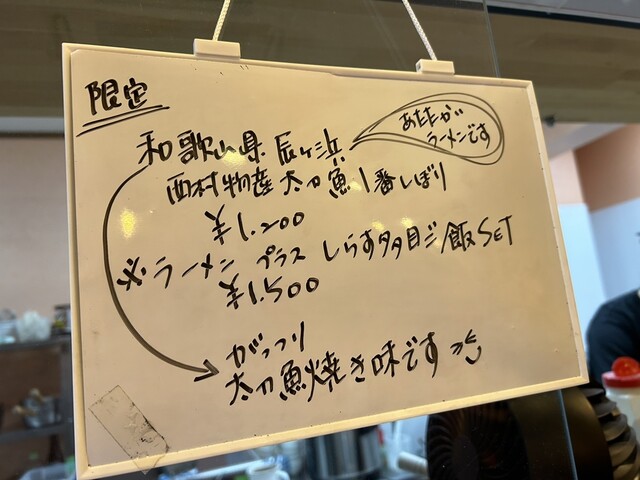 限定
和歌山県 辰ヶ浜
あたたが
ラーメンです
西村物産 太刀魚1番しぼり
¥1.200
※ラーメン プラス しらす多目ご飯SET
¥1.500
がっつり
太刀魚焼き味です